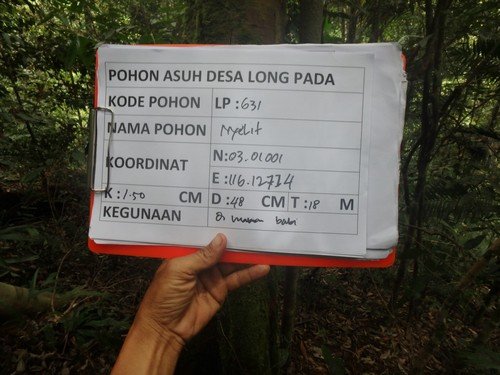 POHON ASUH DESA LONG PADA
KODE POHON LP : 631
NAMA POHON Nyelit
KOORDINAT N:03.01001
E :116.12774
K : 1.50 CM D : 48 CM T : 18 M
KEGUNAAN Di makan babi